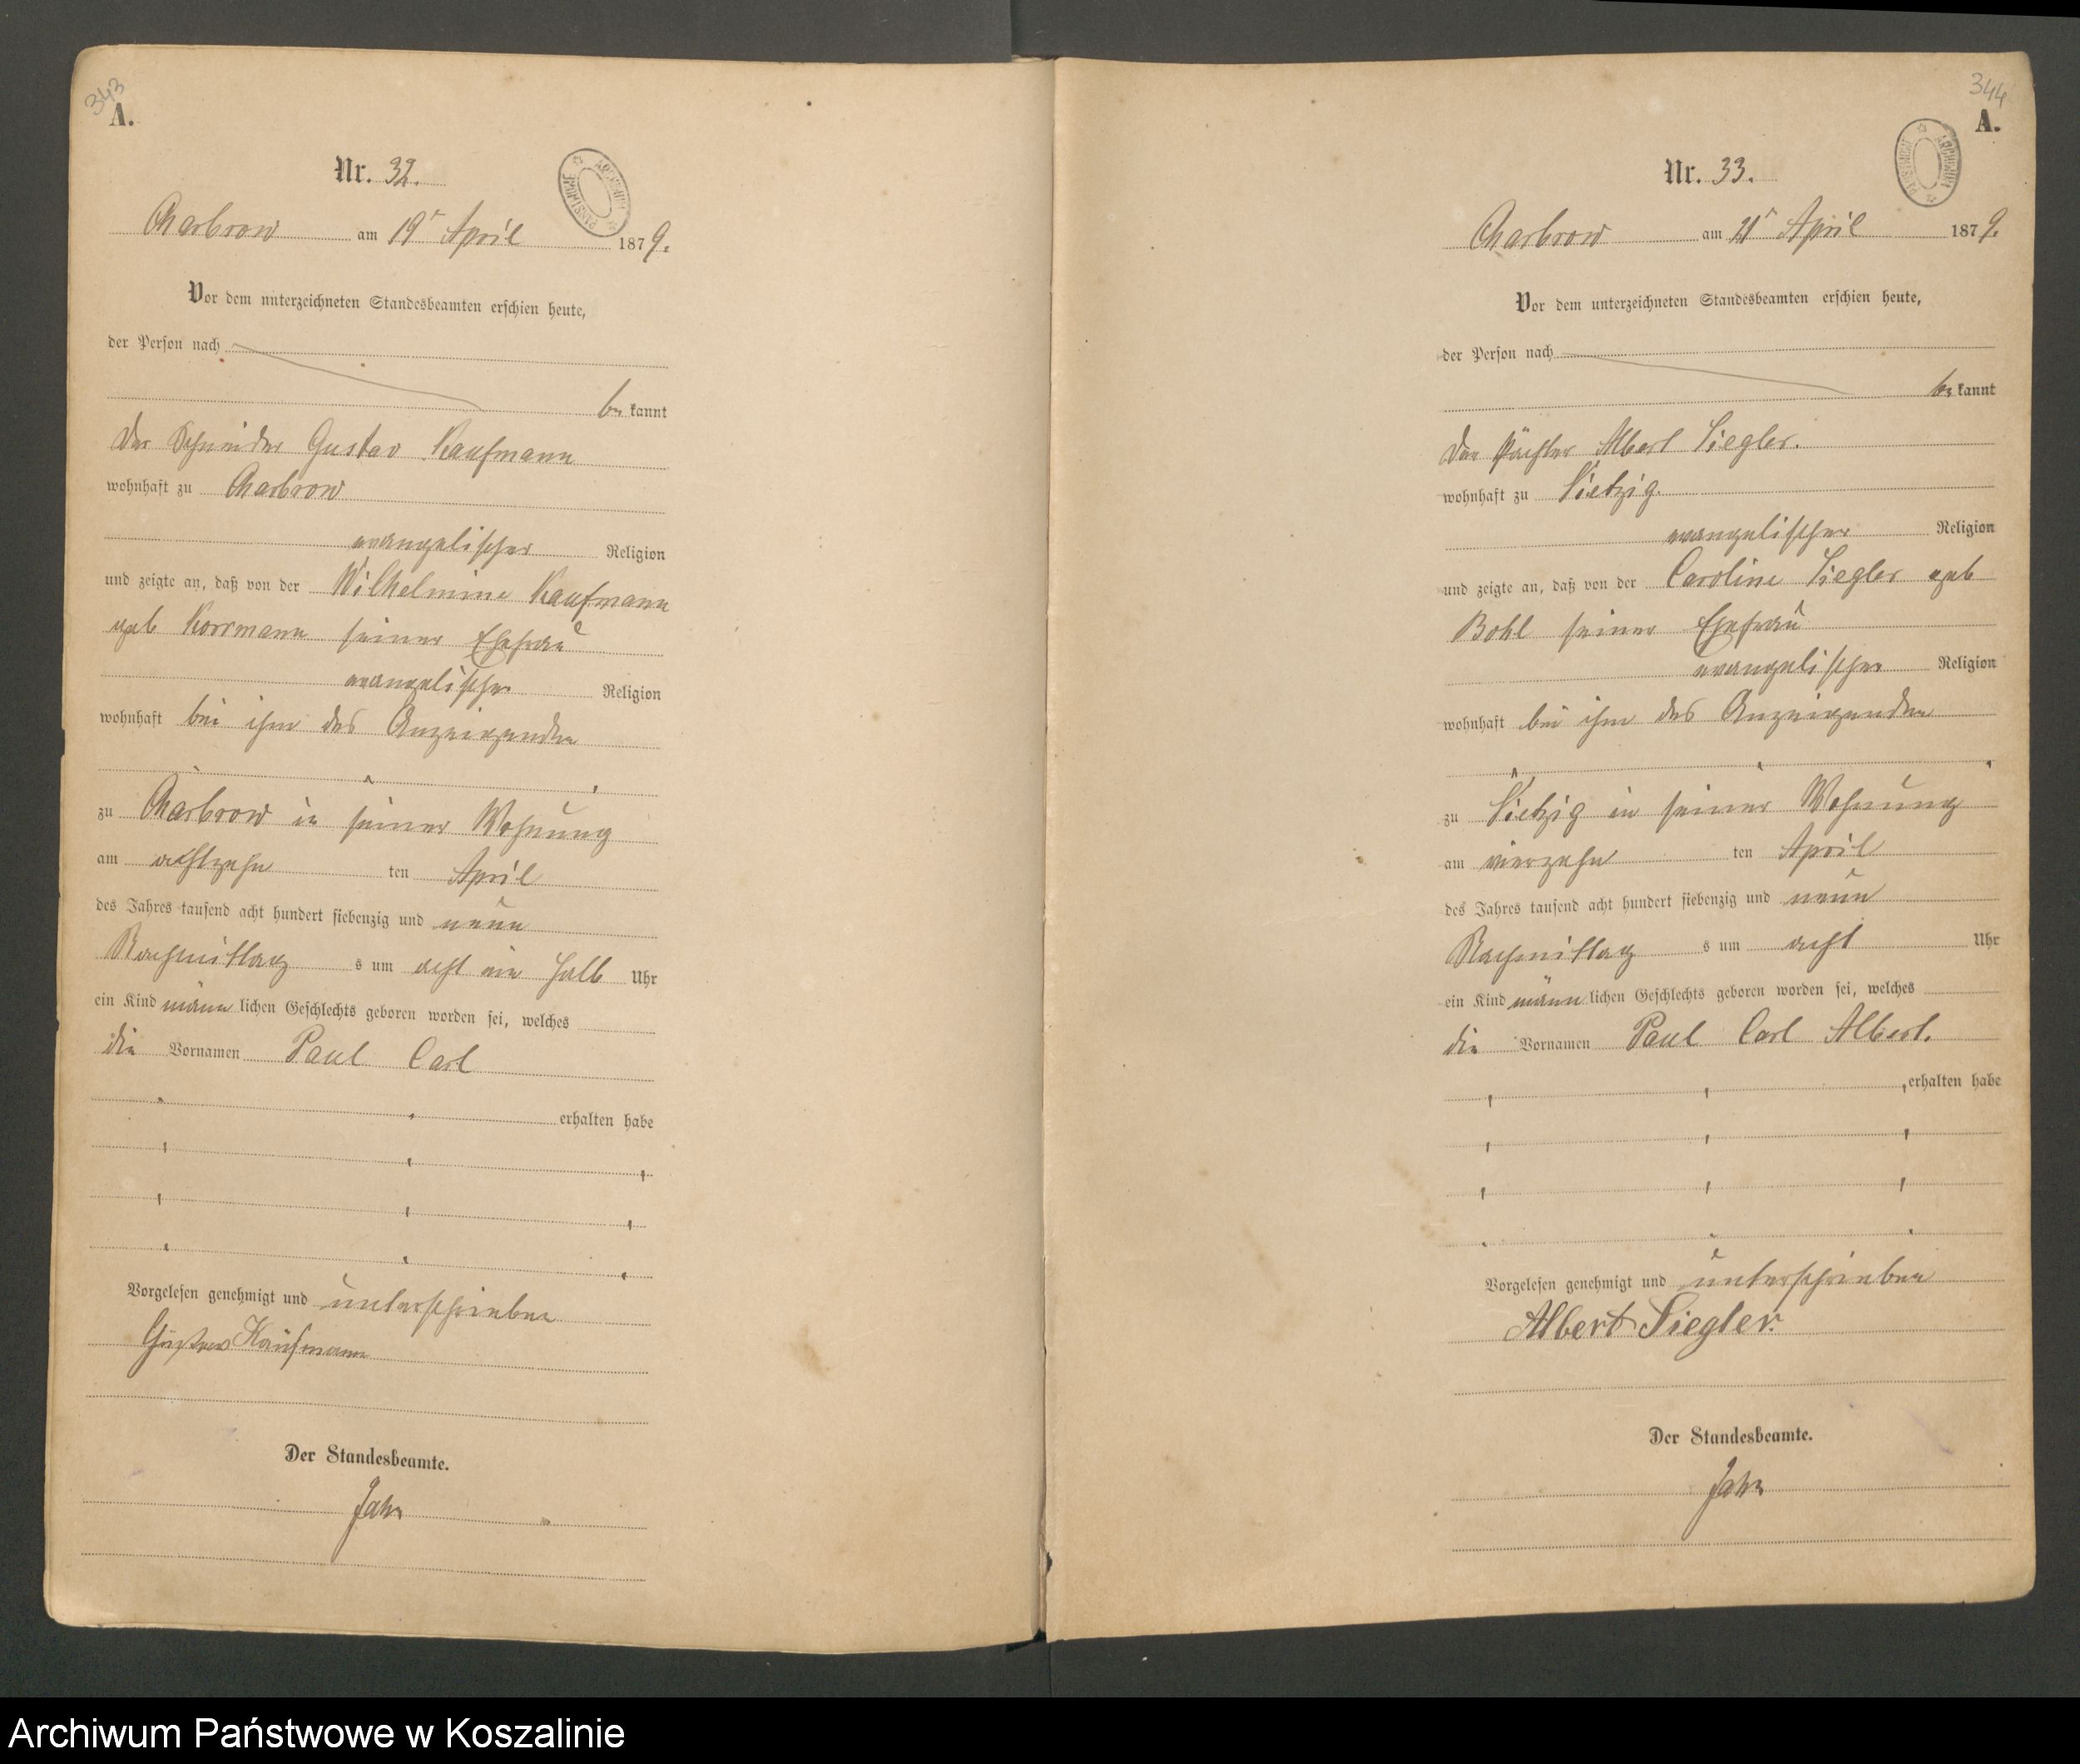 343
A.
Nr. 32.
ARCHIWUM PAŃSTWOWE
Charbrow am 19t April 1879.
Vor dem unterzeichneten Standesbeamten erschien heute,
der Person nach
be kannt
Der Schneider Gustav Kaufmann
wohnhaft zu Charbrow
evangelischer Religion
und zeigte an, daß von der Wilhelmine Kaufmann
geb Korrmann seiner Ehefrau
evangelischer Religion
wohnhaft bei ihm des Anzeigenden
zu Charbrow in seiner Wohnung
am achtzehn ten April
des Jahres tausend acht hundert siebenzig und neun
Nachmittag s um acht ein halb Uhr
ein Kind männ lichen Geschlechts geboren worden sei, welches
die Vornamen Paul Carl
erhalten habe
Vorgelesen genehmigt und unterschrieben
Gustav Kaufmann
Der Standesbeamte.
Jahn
344
A.
Nr. 33.
ARCHIWUM PAŃSTWOWE
Charbrow am 21t April 1879.
Vor dem unterzeichneten Standesbeamten erschien heute,
der Person nach
be kannt
Der Pächter Albert Siegler.
wohnhaft zu Vietzig.
evangelischer Religion
und zeigte an, daß von der Caroline Siegler geb
Bohl seiner Ehefrau
evangelischer Religion
wohnhaft bei ihm des Anzeigenden
zu Vietzig in seiner Wohnung
am vierzehn ten April
des Jahres tausend acht hundert siebenzig und neun
Nachmittag s um acht Uhr
ein Kind männ lichen Geschlechts geboren worden sei, welches
die Vornamen Paul Carl Albert.
erhalten habe
Vorgelesen genehmigt und unterschrieben
Albert Siegler.
Der Standesbeamte.
Jahn
Archiwum Państwowe w Koszalinie